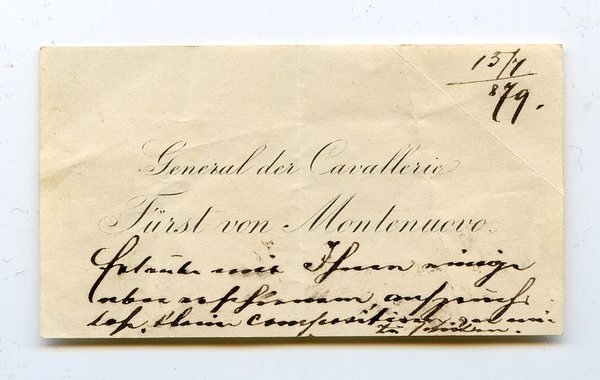 13/7
879.
General der Cavallerie
Fürst von Montenuovo.
Erlaube mir Ihnen einige
eben erschienene, anspruchs
lose, kleine compositionen von mir
zu senden.